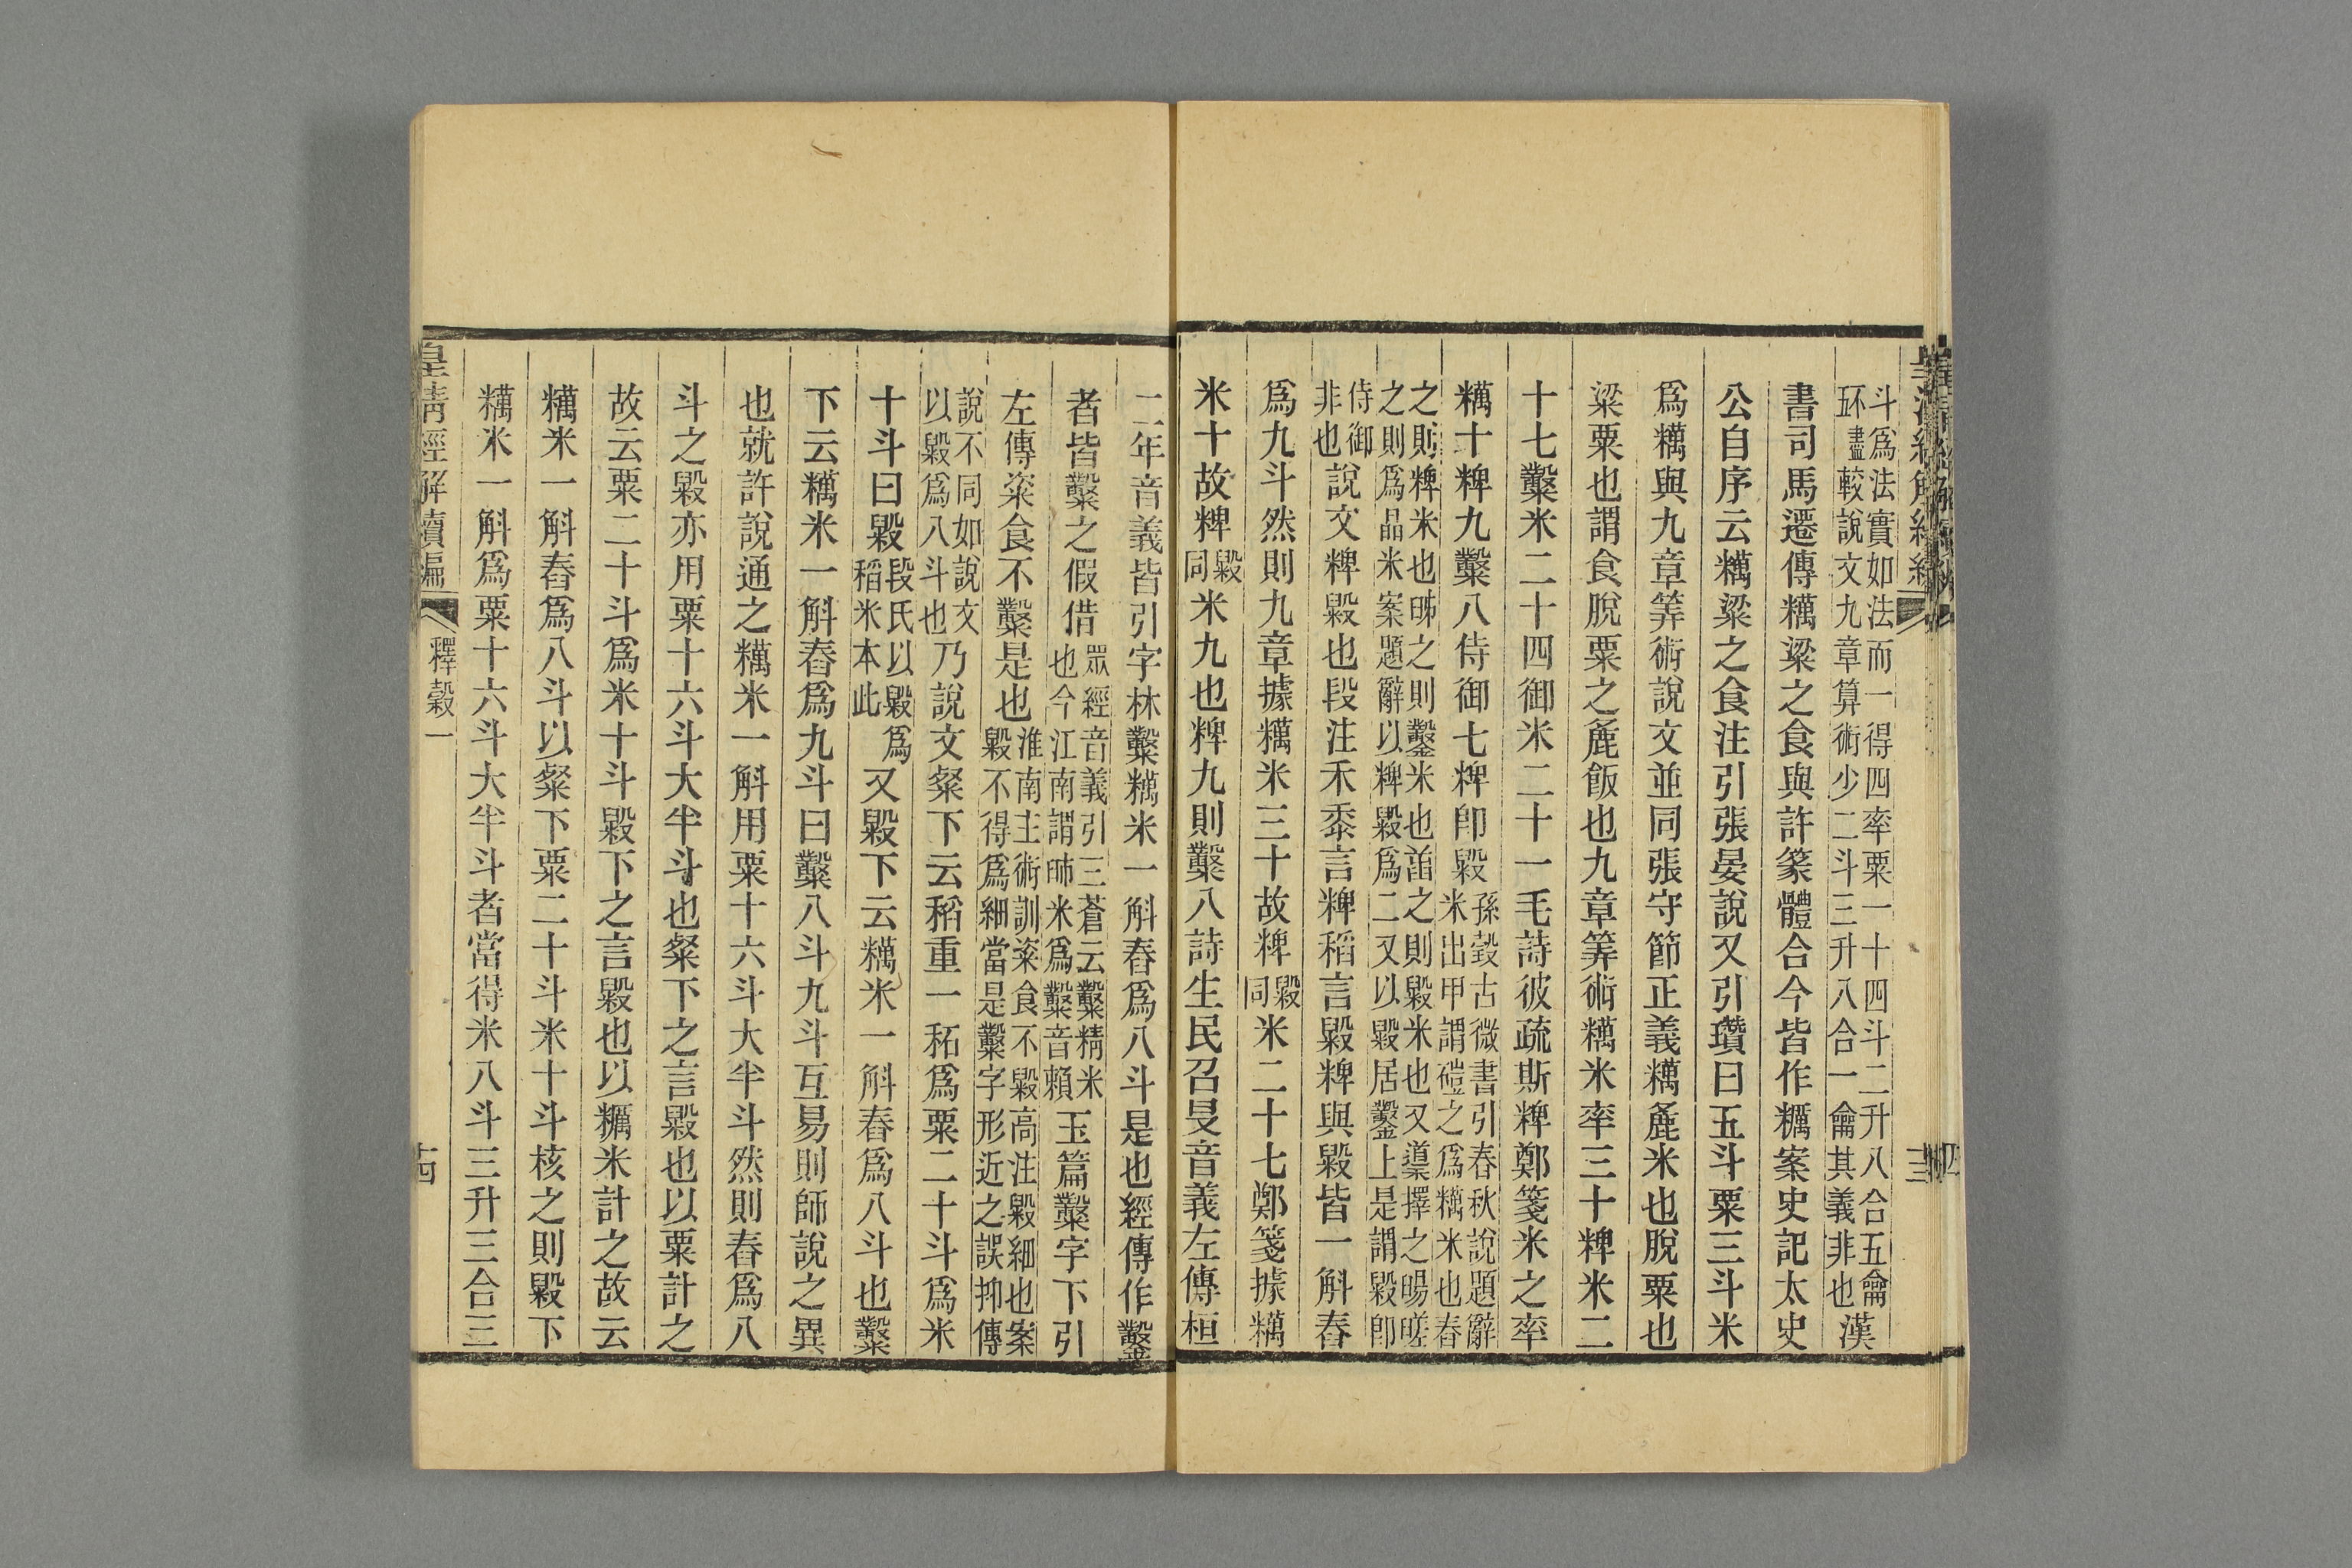 斗爲法實如法而一得四率粟一十四斗二升八合五龠
五不盡較說文九章算術少二斗三升八合一龠其義非也漢
書司馬遷傳糲粱之食與許篆體合今皆作糲案史記太史
公自序云糲粱之食注引張晏說又引瓚曰五斗粟三斗米
爲糲與九章筭術說文並同張守節正義糲麤米也脫粟也
粱粟也謂食脫粟之麤飯也九章筭術糲米率三十粺米二
十七糳米二十四御米二十一毛詩彼疏斯粺鄭箋米之率
糲十粺九糳八侍御七粺卽毇孫瑴古微書引春秋說題辭
米出甲謂磑之爲糲米也舂
之則粺米也𠂹之則鑿米也䑔之則毇米也又䆃擇之暘㬠
之則爲晶米案題辭以粺毇爲二又以毇居鑿上是謂毇卽
侍御
非也說文粺毇也段注禾黍言粺稻言毇粺與毇皆一斛舂
爲九斗然則九章據糲米三十故粺毇同米二十七鄭箋據糲
米十故粺毇同米九也粺九則糳八詩生民召旻音義左傳桓
二年音義皆引字林糳糲米一斛舂爲八斗是也經傳作鑿
者皆糳之假借眾經音義引三蒼云糳精米
也今江南謂師米爲糳音賴玉篇糳字下引
左傳粢食不糳是也淮南主術訓粢食不毇高注毇細也案
毇不得爲細當是糳字形近之誤抑傳
說不同如說文
以毇爲八斗也乃說文粲下云稻重一䄷爲粟二十斗爲米
十斗曰毇段氏以毇爲
稻米本此又毇下云糲米一斛舂爲八斗也糳
下云糲米一斛舂爲九斗曰糳八斗九斗互易則師說之異
也就許說通之糲米一斛用粟十六斗大半斗然則舂爲八
斗之毇亦用粟十六斗大半斗也粲下之言毇也以粟計之
故云粟二十斗爲米十斗毇下之言毇也以糲米計之故云
糲米一斛舂爲八斗以粲下粟二十斗米十斗核之則毇下
糲米一斛爲粟十六斗大半斗者當得米八斗三升三合三
皇清經解續編
釋穀一
十四